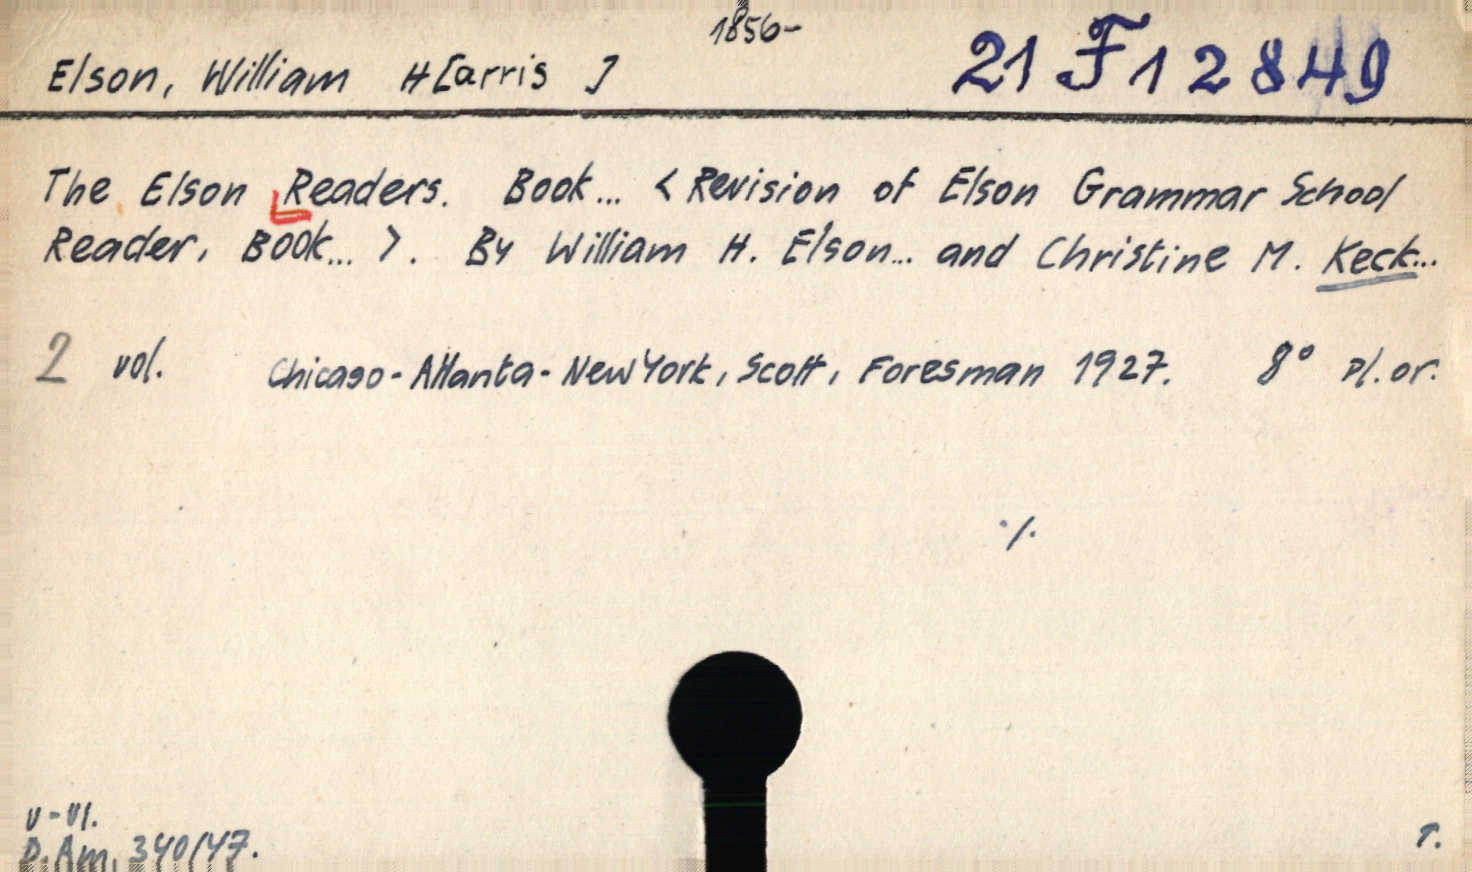 1856-
Elson, William H[arris ] 21 F 12849
The Elson Readers. Book... < Revision of Elson Grammar School
Reader, Book... >. By William H. Elson... and Christine M. Keck...
2 vol. Chicago-Atlanta-New York, Scott, Foresman 1927. 8° Pl.or.
·/.
V-VI.
D.Am. 340/47.
T.